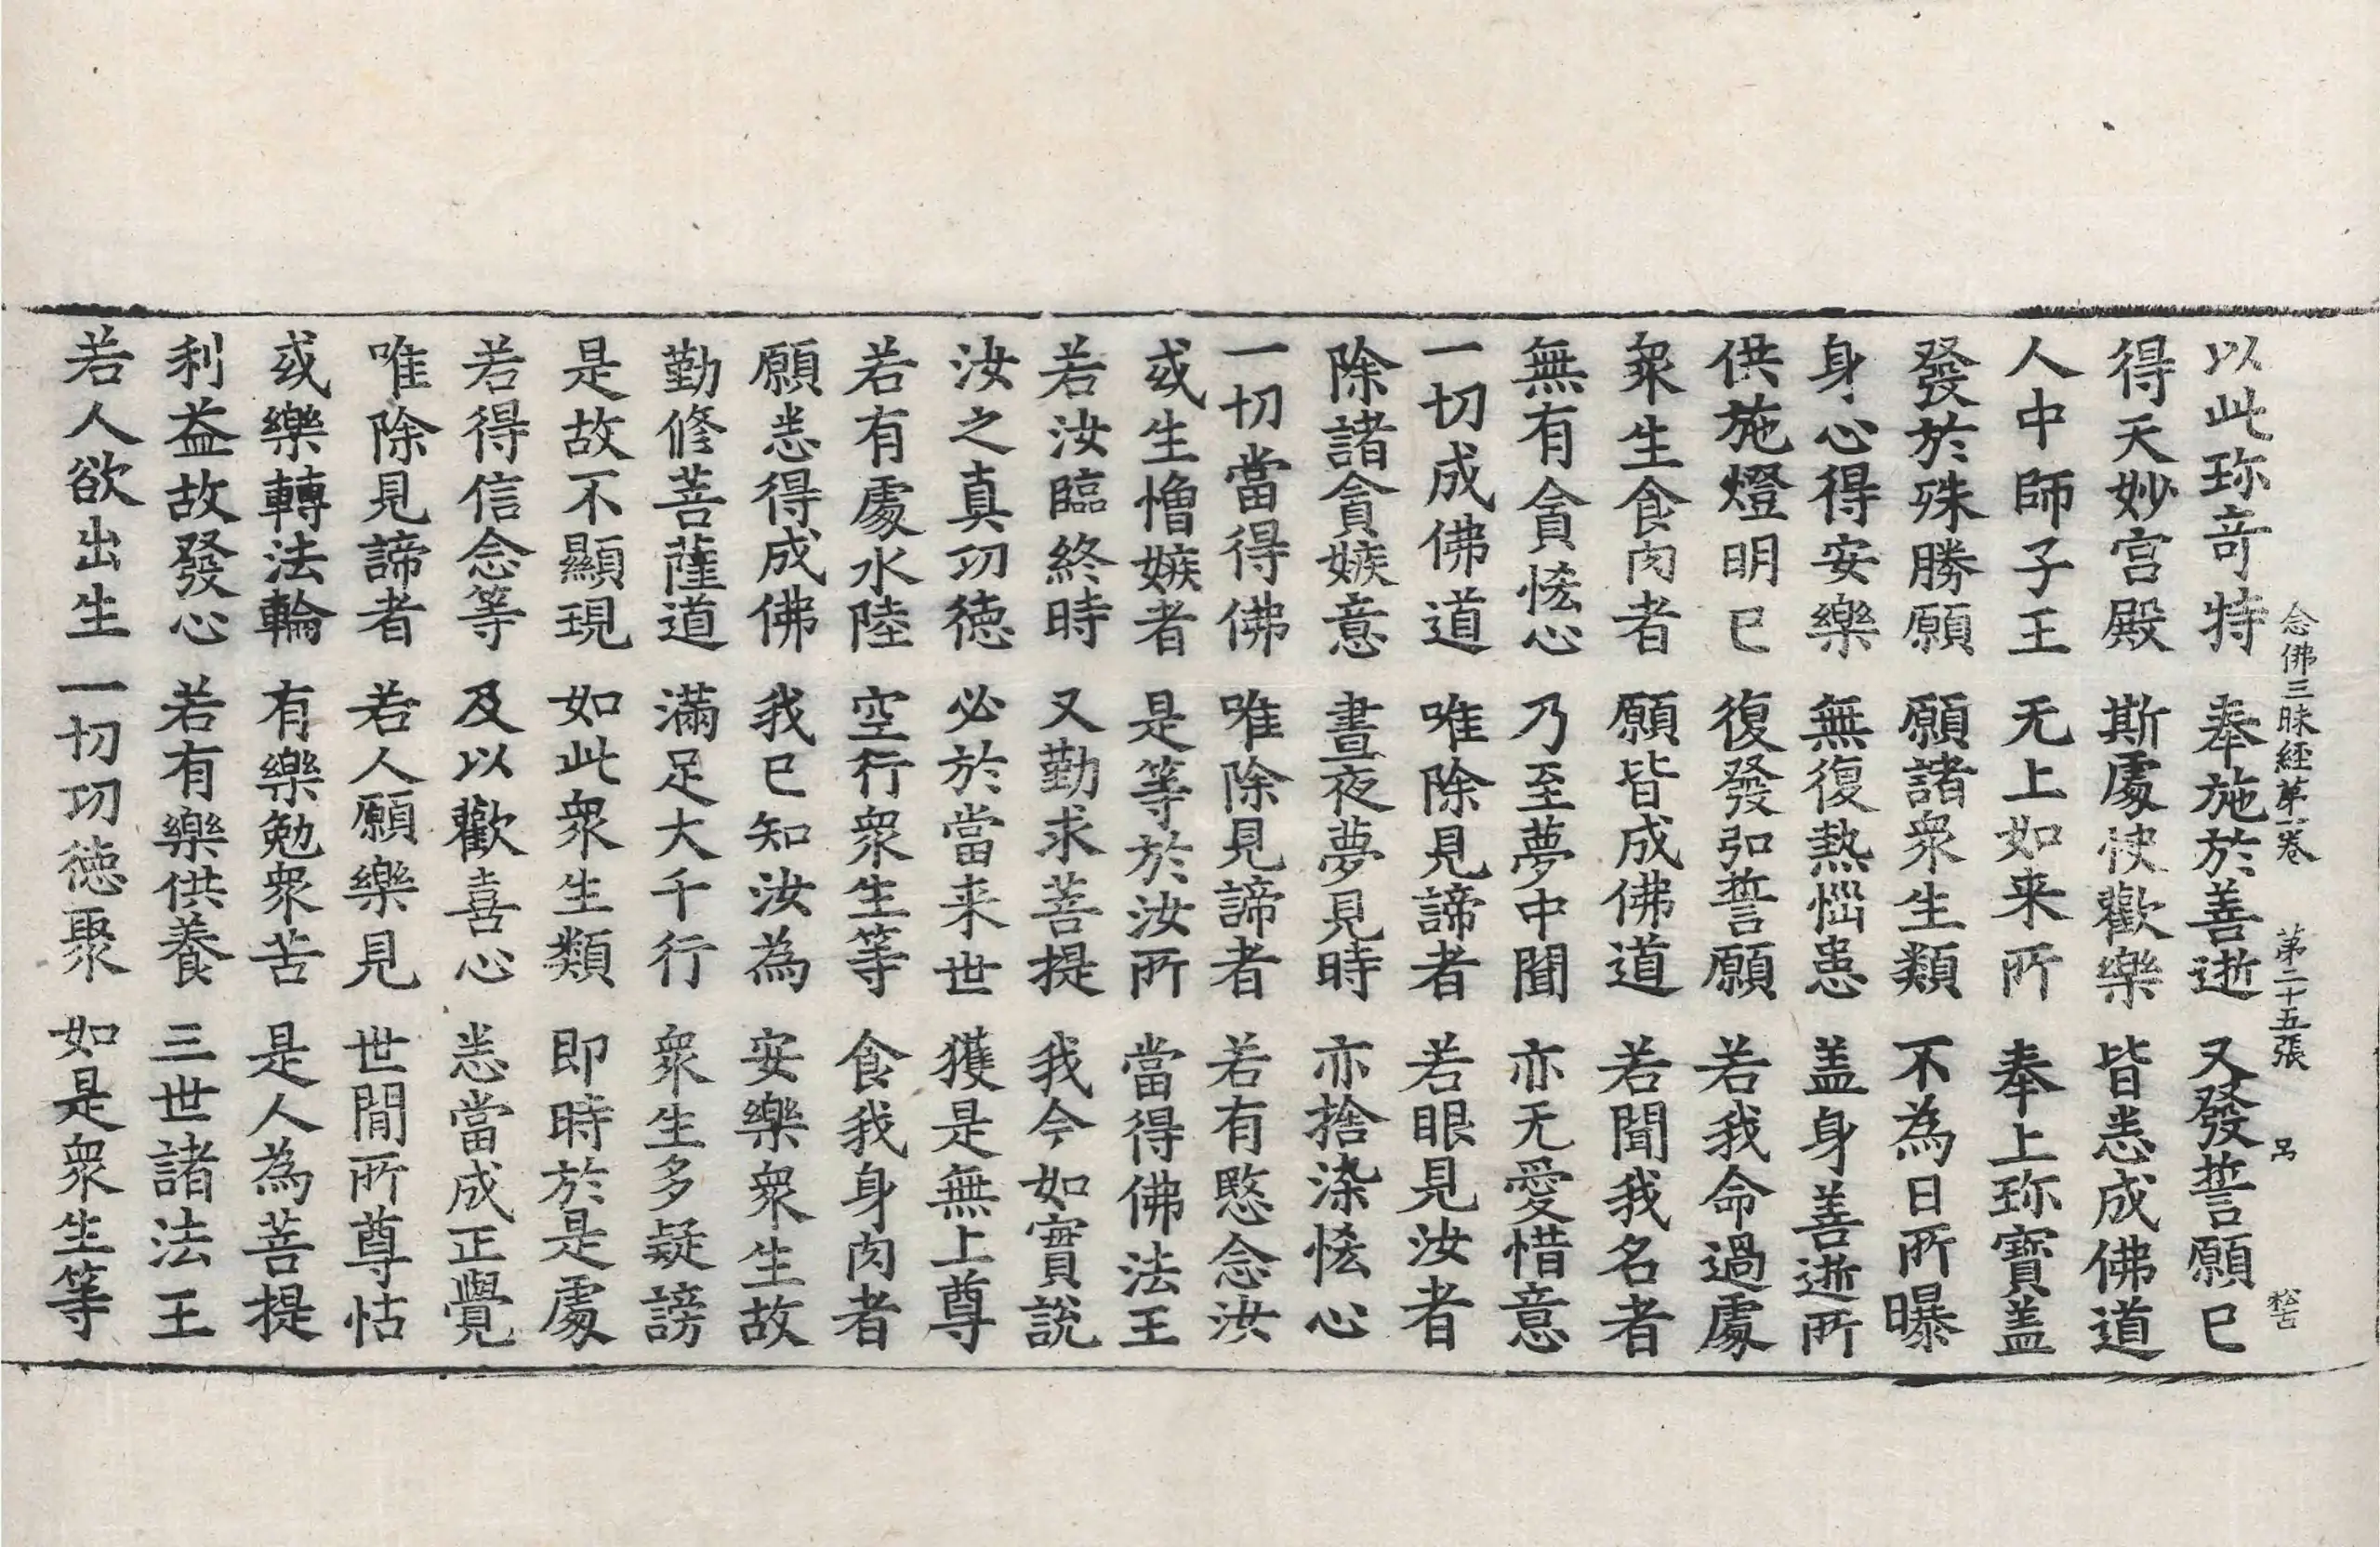 念佛三昧經第一卷 第二十五張 呂 松古
以此珎竒特 奉施於善逝 又發誓願已
得天妙宫殿 斯處快歡樂 皆悉成佛道
人中師子王 无上如来所 奉上珎寶盖
發於殊勝願 願諸衆生類 不為日所曝
身心得安樂 無復熱惱患 盖身善逝所
供施燈明已 復發弘誓願 若我命過處
衆生食肉者 願皆成佛道 若聞我名者
無有貪悋心 乃至夢中聞 亦无愛惜意
一切成佛道 唯除見諦者 若眼見汝者
除諸貪嫉意 晝夜夢見時 亦捨染悋心
一切當得佛 唯除見諦者 若有愍念汝
或生憎嫉者 是等於汝所 當得佛法王
若汝臨終時 又勤求菩提 我今如實說
汝之真功徳 必於當来世 獲是無上尊
若有處水陸 空行衆生等 食我身肉者
願悉得成佛 我已知汝為 安樂衆生故
勤修菩薩道 滿足大千行 衆生多疑謗
是故不顯現 如此衆生類 即時於是處
若得信念等 及以歡喜心 悉當成正覺
唯除見諦者 若人願樂見 世間所尊怙
或樂轉法輪 有樂勉衆苦 是人為菩提
利益故發心 若有樂供養 三世諸法王
若人欲出生 一切功徳聚 如是衆生等